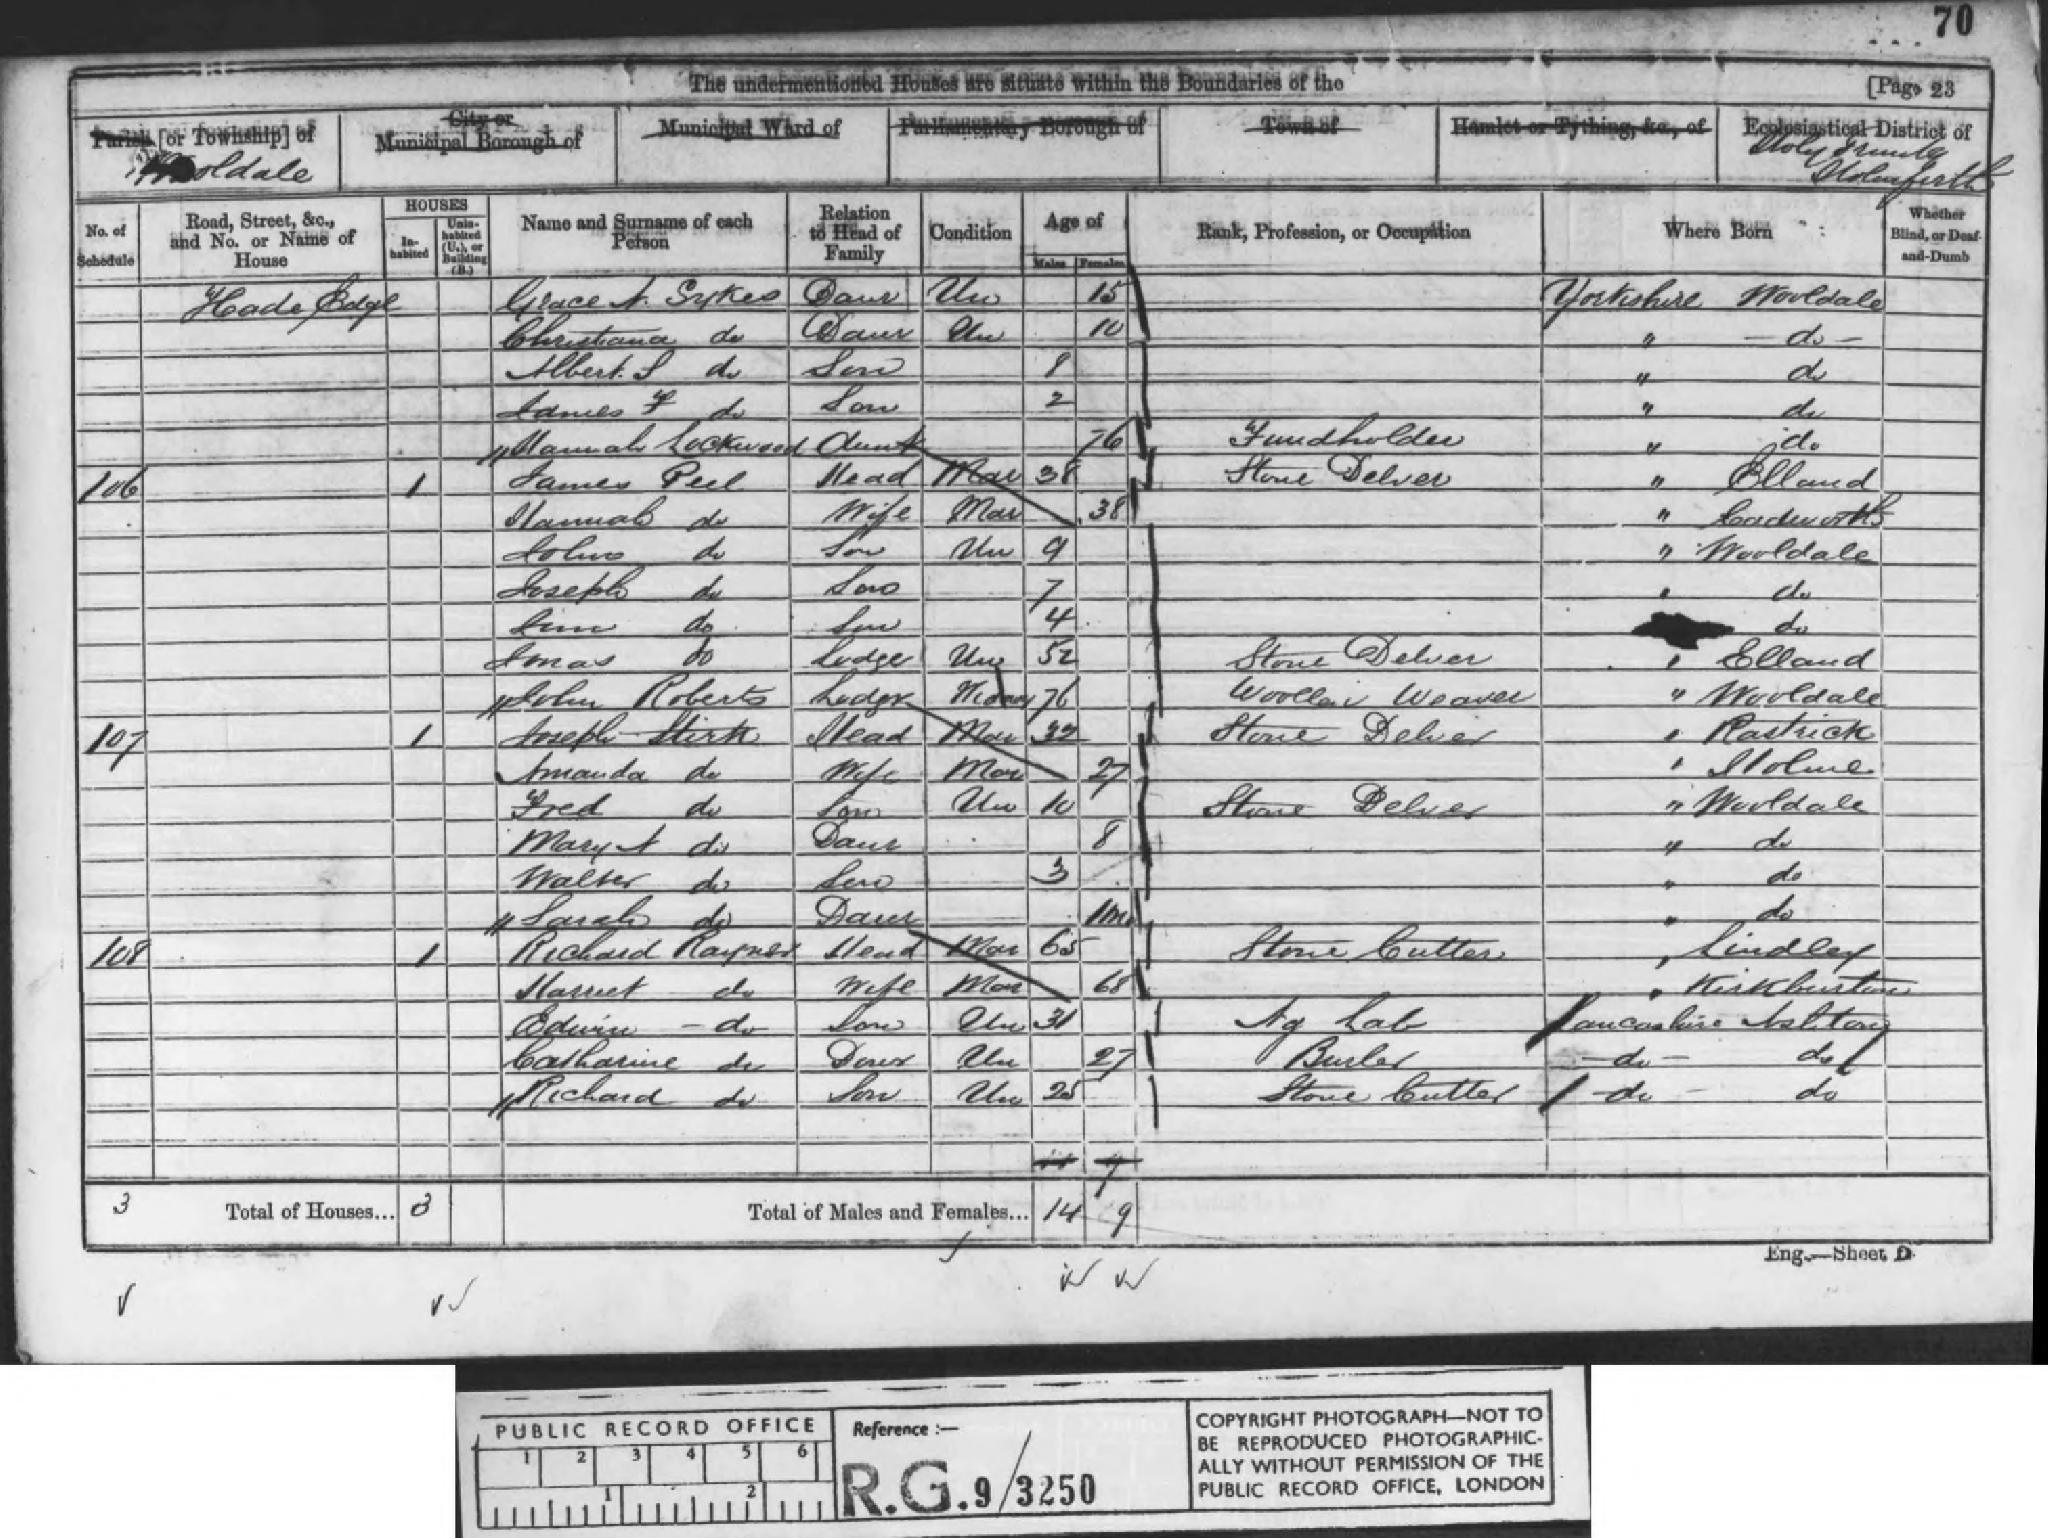 70
The undermentioned Houses are situate within the Boundaries of the [Page 23
Parish [or Township] of City or Municipal Borough of Municipal Ward of Parliamentary Borough of Town of Hamlet or Tything, &c., of Ecclesiastical District of
Wooldale Holy Trinity Holmfirth
No. of Schedule Road, Street, &c., and No. or Name of House HOUSES Inhabited Uninhabited (U.), or Building (B.) Name and Surname of each Person Relation to Head of Family Condition Age of Males Females Rank, Profession, or Occupation Where Born Whether Blind, or Deaf-and-Dumb
Hade Edge Grace A. Sykes Daur Un 15 Yorkshire Wooldale
Christiana do Daur Un 10 " - do -
Albert. S do Son 8 " do
James F do Son 2 " do
Hannah Lockwood Aunt 76 Fundholder " do
106 1 James Peel Head Mar 38 Stone Delver " Elland
Hannah do Wife Mar 38 " Cadworth
John do Son Un 9 " Wooldale
Joseph do Son 7 " do
do Son 4 do
Jonas do Lodger Un 52 Stone Delver " Elland
John Roberts Lodger 76 Woollen Weaver " Wooldale
107 1 Joseph Stirk Head Mar 32 Stone Delver " Rastrick
Amanda do Wife Mar 27 " Holme
Fred do Son Un 10 Stone Delver " Wooldale
Mary A do Daur 8 " do
Walter do Son 3 " do
Sarah do Daur 1m " do
108 1 Richard Rayner Head Mar 65 Stone Cutter " Lindley
Harriet do Wife Mar 68 " Kirkburton
Edwin - do Son Un 31 Ag Lab Lancashire Ashton
Catharine do Daur Un 27 Burler - do - do
Richard do Son Un 25 Stone Cutter - do - do
3 Total of Houses... 3 Total of Males and Females... 14 9
Eng.—Sheet D.
PUBLIC RECORD OFFICE
1 2 3 4 5 6
1 2
Reference :—
R.G. 9/3250
COPYRIGHT PHOTOGRAPH—NOT TO
BE REPRODUCED PHOTOGRAPHIC-
ALLY WITHOUT PERMISSION OF THE
PUBLIC RECORD OFFICE, LONDON